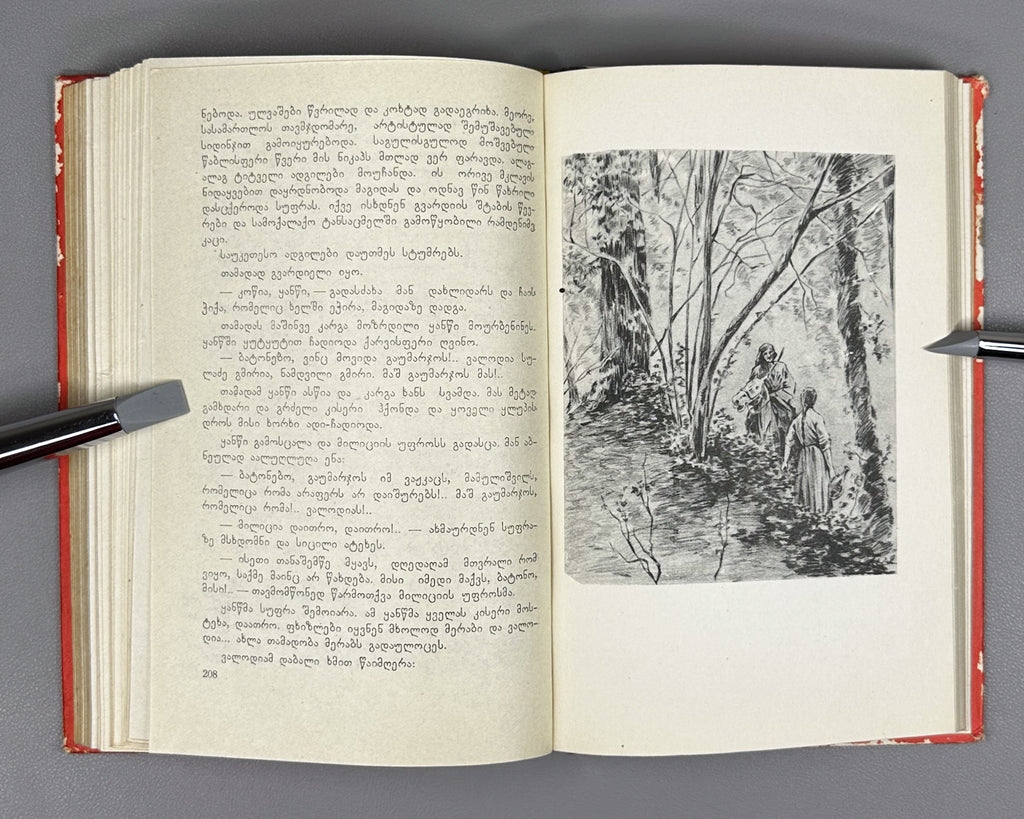 ნებოდა. ულვაშები წვრილად და კოხტად გადაეგრიხა. მეორე,
სასამართლოს თავმჯდომარე, არტისტულად შემუშავებული
სიდინჯით გამოიყურებოდა. საგულისგულოდ მოშვებული
წაბლისფერი წვერი მის ნიკაპს მთლად ვერ ფარავდა. ალაგ-
ალაგ ტიტველი ადგილები მოუჩანდა. ის ორივე მკლავის
ნიდაყვებით დაყრდნობოდა მაგიდას და ოდნავ წინ წახრილი
დასცქეროდა სუფრას. იქვე ისხდნენ გვარდიის შტაბის წევ-
რები და სამოქალაქო ტანსაცმელში გამოწყობილი რამდენიმე
კაცი.
საუკეთესო ადგილები დაუთმეს სტუმრებს.
თამადად გვარდიელი იყო.
— კოწია, ყანწი, — გადასძახა მან დახლიდარს და ჩაის
ჭიქა, რომელიც ხელში ეჭირა, მაგიდაზე დადგა.
თამადას მაშინვე კარგა მოზრდილი ყანწი მოურბენინეს.
ყანწში ყუტყუტით ჩადიოდა ქარვისფერი ღვინო.
— ბატონებო, ვინც მოვიდა გაუმარჯოს!.. ვალოდია სუ-
ლაძე გმირია, ნამდვილი გმირი. მაშ გაუმარჯოს მას!..
თამადამ ყანწი ასწია და კარგა ხანს სვამდა. მას მეტად
გამხდარი და გრძელი კისერი ჰქონდა და ყოველი ყლუპის
დროს მისი ხორხი ადი-ჩადიოდა.
ყანწი გამოსცალა და მილიციის უფროსს გადასცა. მან აბ-
ნეულად აალუღლუღა ენა:
— ბატონებო, გაუმარჯოს იმ ვაჟკაცს, მამულიშვილს,
რომელიცა რომა არაფერს არ დაიშურებს!.. მაშ გაუმარჯოს,
რომელიცა რომა!.. ვალოდიას!..
— მილიცია დაითრო, დაითრო!.. — ახმაურდნენ სუფრა-
ზე მსხდომნი და სიცილი ატეხეს.
— ისეთი თანაშემწე მყავს, დღედაღამ მთვრალი რომ
ვიყო, საქმე მაინც არ წახდება. მისი იმედი მაქვს, ბატონო,
მისი!.. — თავმომწონედ წარმოთქვა მილიციის უფროსმა.
ყანწმა სუფრა შემოიარა. ამ ყანწმა ყველას კისერი მოს-
ტეხა, დაათრო. ფხიზლები იყვნენ მხოლოდ მერაბი და ვალო-
დია... ახლა თამადობა მერაბს გადაულოცეს.
ვალოდიამ დაბალი ხმით წაიმღერა:
208